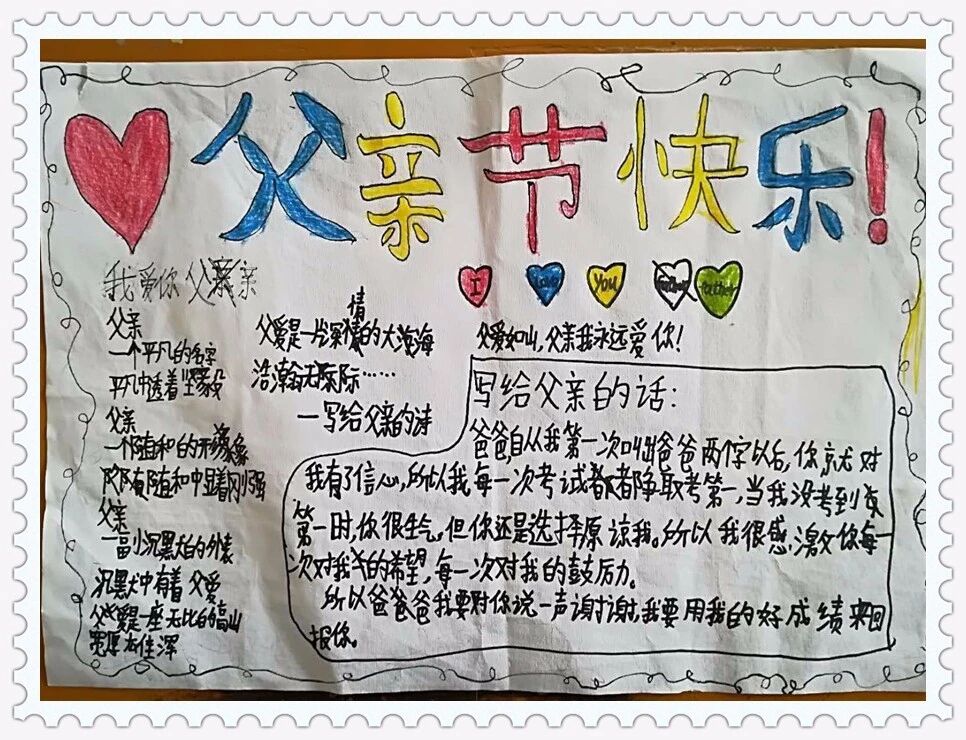 父亲节快乐!
我爱你父亲
I Love You father father
父亲
一个平凡的名字
平凡中透着坚毅
父亲
一个随和的形象
随和中显着刚强
父亲
一副沉默的外表
沉默中有着父爱
父爱是一座无比的高山
父爱是一片深情的大海
浩瀚无际……
—写给父亲的诗
父爱如山,父亲我永远爱你!
写给父亲的话:
爸爸自从我第一次叫出爸爸两个字以后,你就对
我有了信心,所以我每一次考试都争取考第一,当我没考到
第一时,你很生气,但你还是选择原谅我。所以我很感激你每一
次对我的希望,每一次对我的鼓励。
所以爸爸我要对你说一声谢谢,我要用我的好成绩来回
报你。